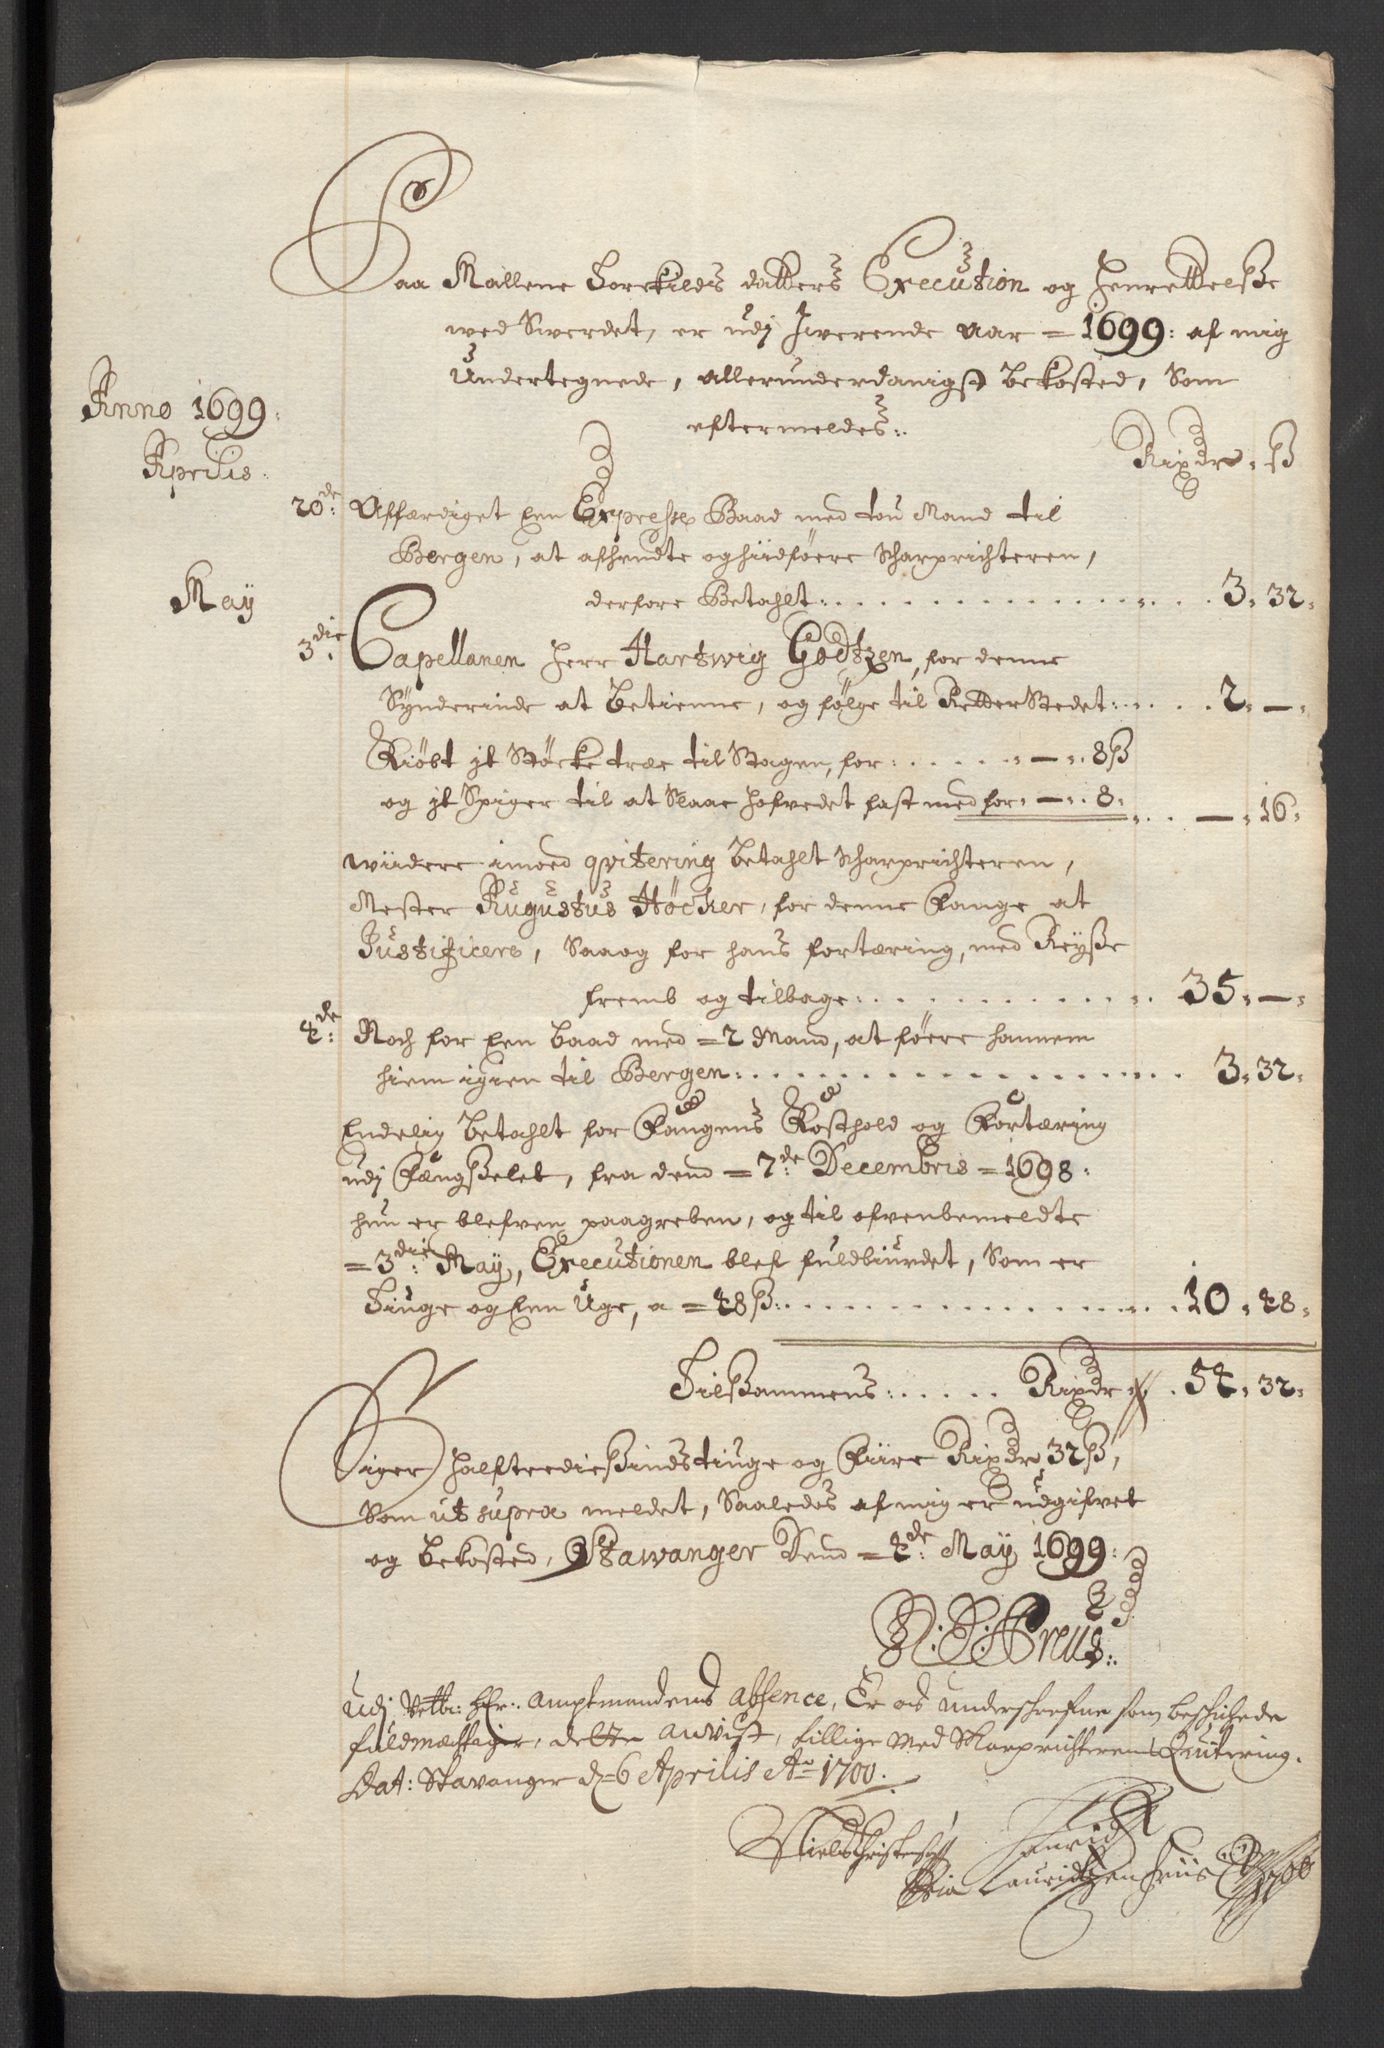 Paa Mallene Torekilds datters Execution og Henrettelße
wed Swerdet, er udj Jwerende aar = 1699: af mig
Undertegnede, allerunderdanigst bekosted, Som
eftermeldes:.
Anno 1699:
Rixdr. ß
Aprilis.
20de: Affærdiget Een Expresse Baad med tou Mand til
Bergen, at afhendte og hiidføere Scharprichteren,
derfore Betahlt: . . . 3. 32.
May
3die. Capellanen Herr Hartwig Godtzen, for denne
Sÿnderinde at betienne, og følge til RetterStedet: . . . 2. —.
Kiøbt jt Støcke træ til Stagen, for: . . . —. 8ß
og jt Spiger til at Slaae hofvedet fast med for. —. 8. . . . —. 16.
widere imod qvitering betahlt Scharprichteren,
Mester Augustus Höcker, for denne Fange at
Justificere, Saaog for hans fortæring, med Reÿße
fremb og tilbage: . . . 35. —.
4de: Noch for Een baad med = 2 Mand, at føere hannem
hiem igien til Bergen: . . . 3. 32.
Endelig betahlt for Fangens Kosthold og Fortæring
udj Fængßelet, fra dend = 7de: Decembris = 1698:
hun er blefven paagreben, og til ofvenbemeldte
= 3die: Maÿ, Executionen blef fuldbiurdet, Som er
Tiuge og Een Uge, a = 48 ß: . . . 10. 48.
Tilßammens: . . . Rixdr . 54. 32.
Siger Halftrediesindstiuge og Fiire Rixdr 32 ß,
Som ut supra meldet, Saaledes af mig er udgifvet
og bekosted, Stawanger Dend = 4de: Maÿ 1699:
Udj Velb: Hr: Amptmandens absence, Er os underschrefne som beschichede
fuldmægtiger, dette anvist, tillige med Skarprichterens Quitering.
Dat: Stavanger d. 6 Aprilis Ao 1700.
Niels Christensøn
Lauridtzen Friis